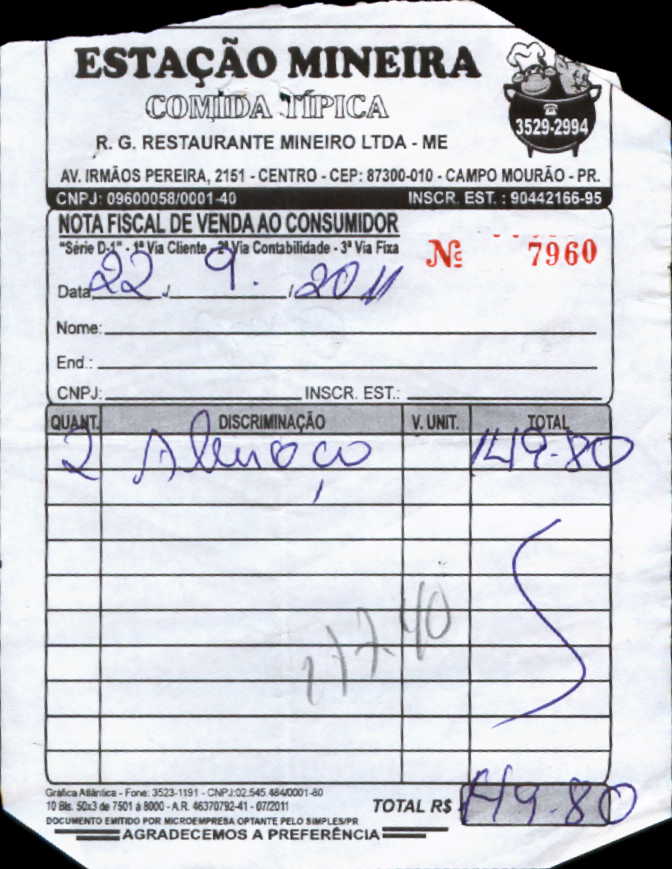 ESTAÇÃO MINEIRA
COMIDA TÍPICA
3529-2994
R. G. RESTAURANTE MINEIRO LTDA - ME
AV. IRMÃOS PEREIRA, 2151 - CENTRO - CEP: 87300-010 - CAMPO MOURÃO - PR.
CNPJ: 09600058/0001-40 INSCR. EST. : 90442166-95
NOTA FISCAL DE VENDA AO CONSUMIDOR
"Série D-1" - 1ª Via Cliente - 2ª Via Contabilidade - 3ª Via Fixa
Nº 7960
Data 22 / 9. / 2011
Nome:
End.:
CNPJ: INSCR. EST.:
QUANT. DISCRIMINAÇÃO V. UNIT. TOTAL
2 Almoço 49.80
Gráfica Atlântica - Fone: 3523-1191 - CNPJ:02.545.484/0001-80
10 Bls. 50x3 de 7501 à 8000 - A.R. 46370792-41 - 07/2011
TOTAL R$ 49.80
DOCUMENTO EMITIDO POR MICROEMPRESA OPTANTE PELO SIMPLES/PR
AGRADECEMOS A PREFERÊNCIA